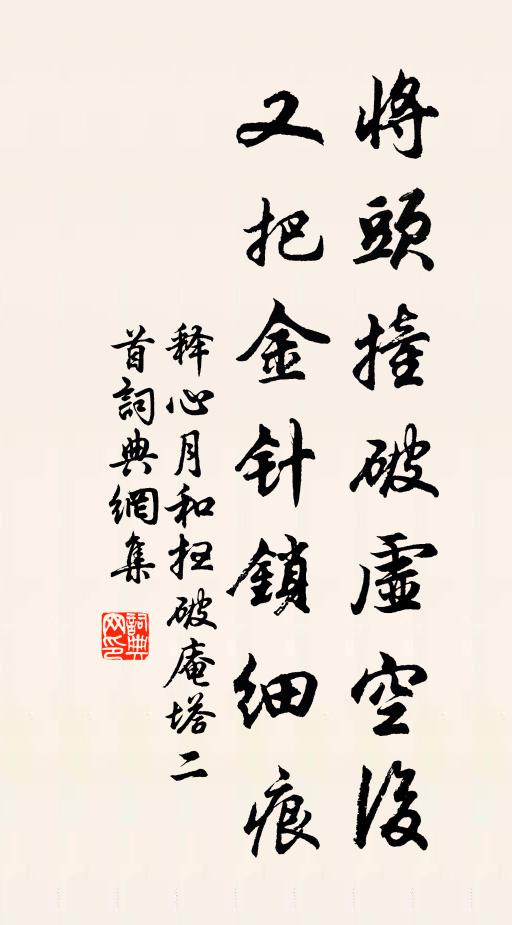 將頭撞破虛空後
又把金针鎖细痕
释心月和扭破庵塔二
首詞典網集
詞典
网印